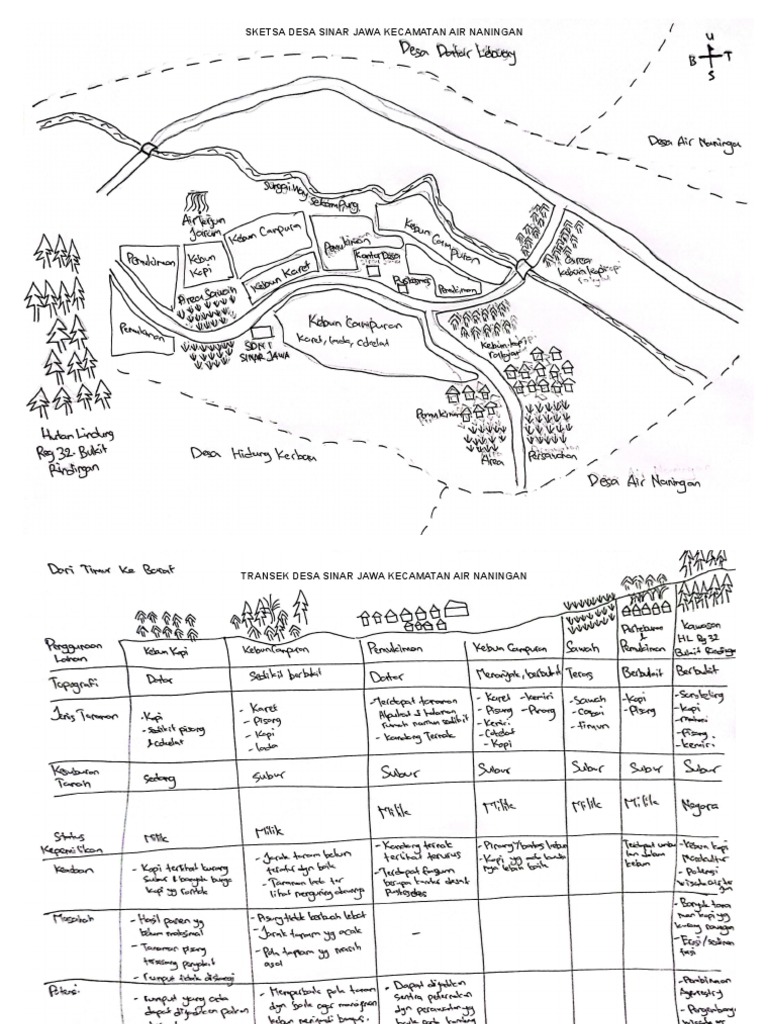 SKETSA DESA SINAR JAWA KECAMATAN AIR NANINGAN
Desa Datar Lebuay
U
B T
S
Desa Air Naningan
Sungai Way Sekampung
Air Terjun
Jarum
Kebun Campuran
Pemukiman
Kebun Campuran
Pemukiman
Kebun
Kopi
Kantor Desa
Kebun Karet
Puskesmas
Pemukiman
Area
kebun kopi
Area Sawah
Pemukiman
SDN 1
SINAR JAWA
Kebun Campuran
Karet, lada, cokelat
Kebun kopi
Pemukiman
Hutan Lindung
Reg 32 Bukit
Rindingan
Desa Hidung Kerbau
Area Persawahan
Desa Air Naningan
Dari Timur Ke Barat
TRANSEK DESA SINAR JAWA KECAMATAN AIR NANINGAN
Penggunaan
Lahan
Kebun Kopi
Kebun Campuran
Pemukiman
Kebun Campuran
Sawah
&
Pemukiman
Kawasan
HL Reg 32
Bukit Rindingan
Topografi
Datar
Sedikit berbukit
Datar
Menanjak, berbukit
Teras
Berbukit
Berbukit
Jenis Tanaman
- Kopi
- sedikit pisang
& cokelat
- Karet
- Pisang
- Kopi
- Lada
- Terdapat tanaman
Alpukat di halaman
rumah namun sedikit
- Kandang Ternak
- Karet - kemiri
- Pisang - Pinang
- Kemiri
- Cokelat
- Kopi
- Sawah
- Cabai
- Timun
- Kopi
- Pisang
- Sonokeling
- kopi
- pisang
- kemiri
Kesuburan
Tanah
Sedang
Subur
Subur
Subur
Subur
Subur
Subur
Status
Kepemilikan
Milik
Milik
Milik
Milik
Milik
Milik
Negara
Keadaan
- Kopi terlihat kurang
subur & banyak bunga
kopi yg rontok
- Jarak tanam belum
teratur dgn baik
- Tanaman lada ter
lihat menguning daunnya
- Kandang ternak
terlihat terurus
- Terdapat bangunan
berupa kantor desa &
Puskesdes
- Kebun kopi
- Potensi
Masalah
- Hasil panen yg
belum maksimal
- Tanaman pisang
terserang penyakit
- Rumput tidak disiangi
- Pisang tidak berbuah lebat
- Jarak tanam yg acak
- Pola tanam yg masih
asal
-
- Banyak tana
man kopi yg
kurang
- Erosi/sedimen
tasi
Potensi
- Rumput yang ada
dapat dijadikan pakan
- Memperbaiki pola tanam
dgn baik agar
- Dapat dijadikan
sentra peternakan
- Pembinaan
Agroforestry
- Pengembang